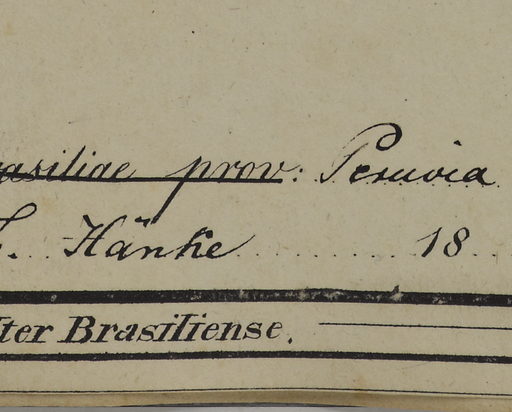 asiliae prov: Peruvia
Hänke 18
ter Brasiliense.